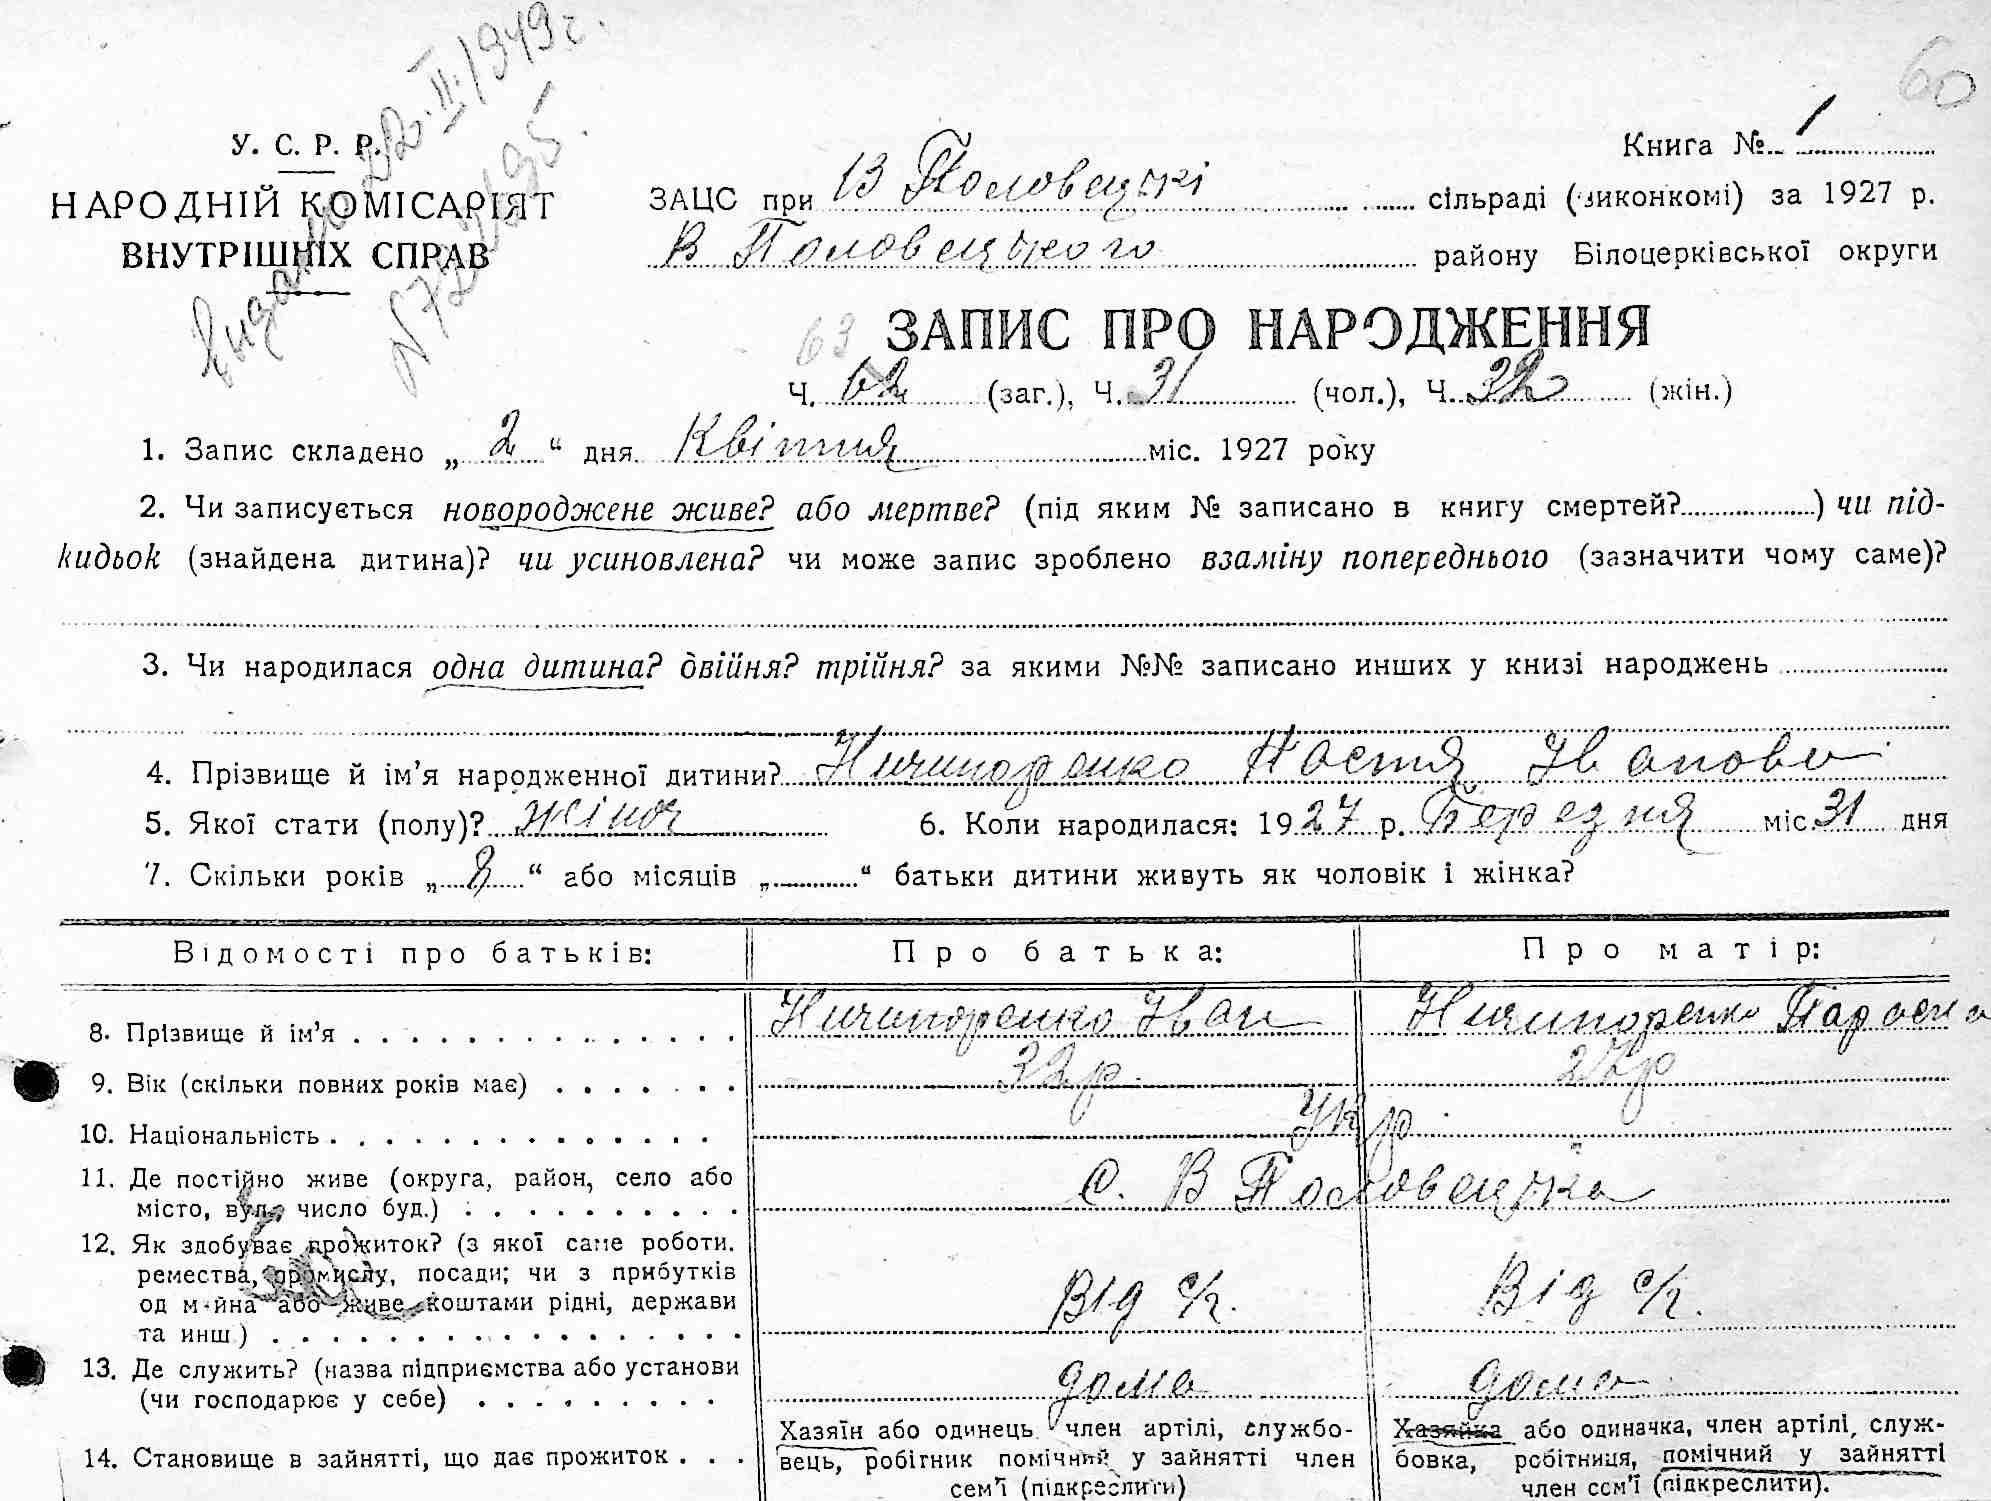 60
Видано 22.II.1949 г.
У. С. Р. Р.
НАРОДНІЙ КОМІСАРІЯТ
ВНУТРІШНІХ СПРАВ
Книга № 1
ЗАЦС при В Половецькі сільраді (виконкомі) за 1927 р.
В Половецького району Білоцерківської округи
ЗАПИС ПРО НАРОДЖЕННЯ
63
Ч. 62 (заг.), Ч. 31 (чол.), Ч. 32 (жін.)
1. Запис складено „ 2 “ дня Квітня міс. 1927 року
2. Чи записується новороджене живе? або мертве? (під яким № записано в книгу смертей?..........) чи під-
кидьок (знайдена дитина)? чи усиновлена? чи може запис зроблено взаміну попереднього (зазначити чому саме)?
3. Чи народилася одна дитина? двійня? трійня? за якими №№ записано инших у книзі народжень
4. Прізвище й ім’я народженної дитини? Ничипоренко Настя Іванова
5. Якої стати (полу)? жіноч 6. Коли народилася: 1927 р. Березня міс. 31 дня
7. Скільки років „ 8 “ або місяців „..........“ батьки дитини живуть як чоловік і жінка?
Відомості про батьків: Про батька: Про матір:
8. Прізвище й ім’я Ничипоренко Іван Ничипоренко Параска
9. Вік (скільки повних років має) 32 р.
10. Національність Укр
11. Де постійно живе (округа, район, село або
місто, вул., число буд.) С. В Половецька
12. Як здобуває прожиток? (з якої саме роботи.
ремества, промислу, посади; чи з прибутків
од майна або живе коштами рідні, держави
та инш.) Від с/г. Від с/г.
13. Де служить? (назва підприємства або установи
(чи господарює у себе) дома дома
14. Становище в зайнятті, що дає прожиток
Хазяїн або одинець член артілі, службо-
вець, робігник помічний у зайнятті член
сем’ї (підкреслити)
Хазяйка або одиначка, член артілі, служ-
бовка, робітниця, помічний у зайнятті
член сем’ї (підкреслити).